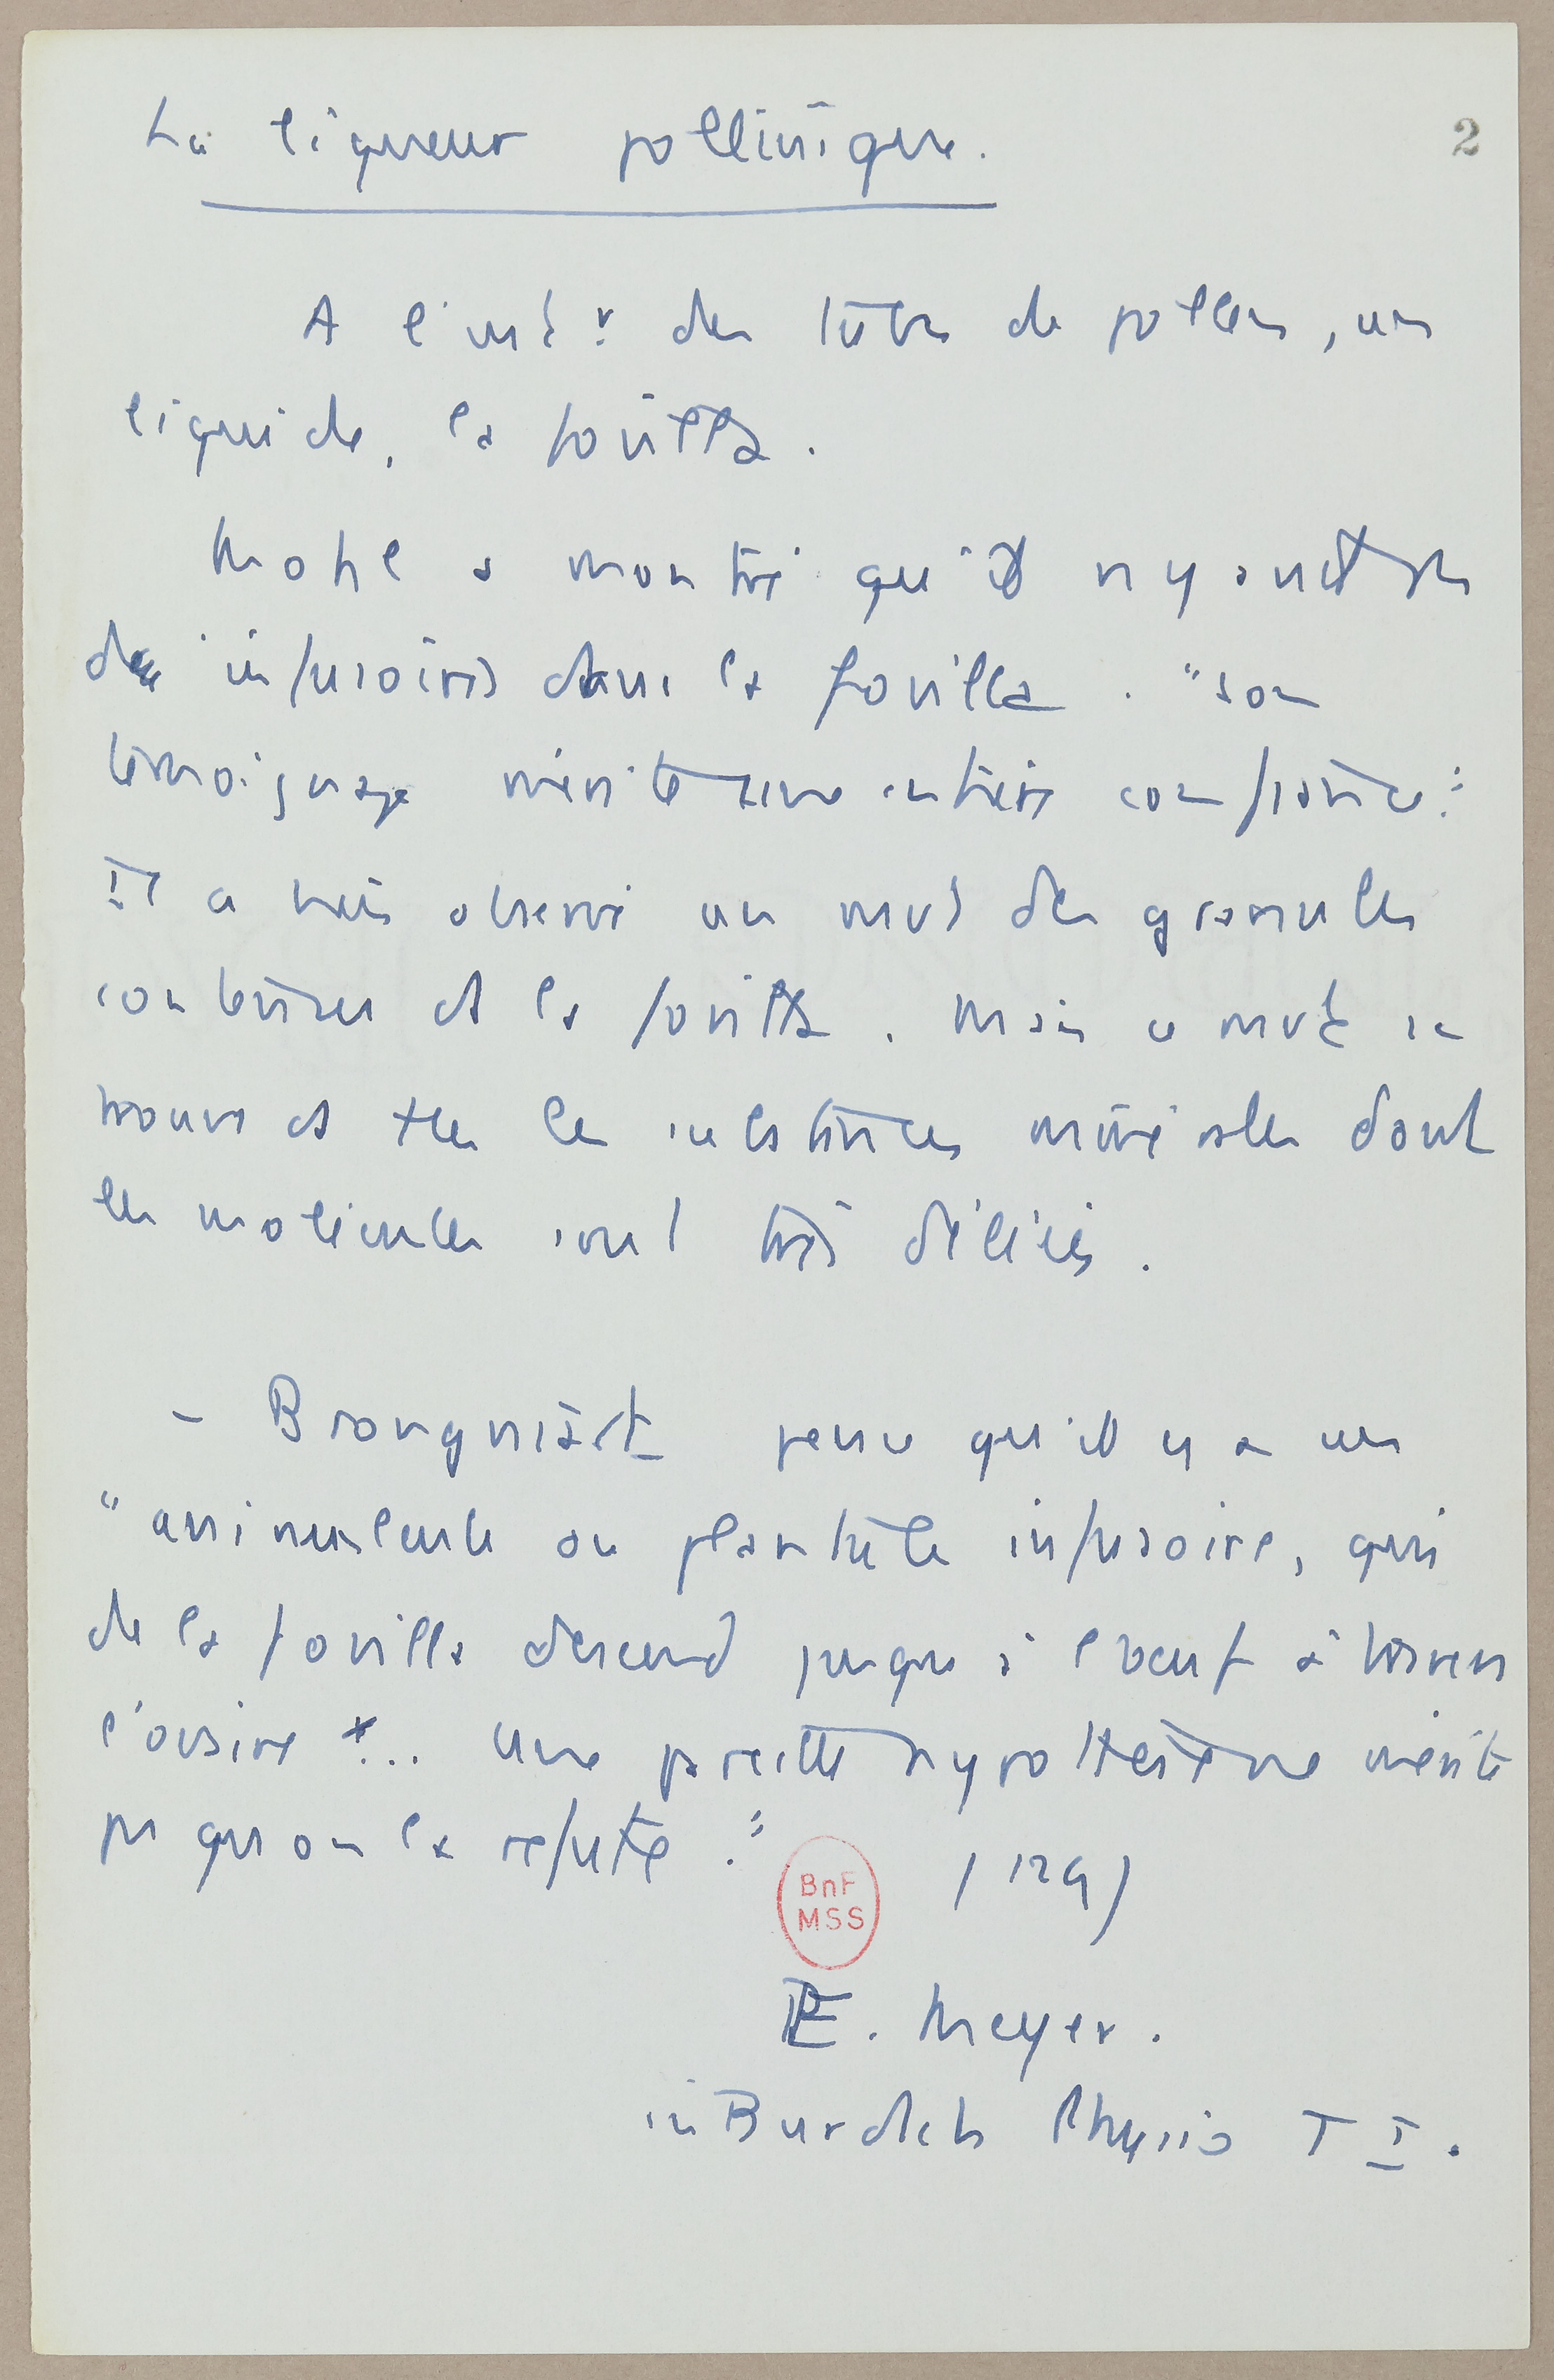 La liqueur pollinique.
2
A l'intr des tubes de pollen, un
liquide, la fovilla.
Mohl a montré qu'il n'y avait pas
des infusoires dans la fovilla. "son
témoignage mérite une entière confiance."
Il a bien observé un mvt des granules
contenues ds la fovilla. Mais ce mvt se
trouve ds ttes les substances minérales dont
les molécules sont très déliées.
- Brongniart pense qu'il y a un
"animalcule ou plantule infusoire, qui
de la fovilla descend jusque à l'oeuf à travers
l'ovaire... Une pareille hypothèse ne mérite
pas qu'on la réfute." (129)
BnF
MSS
E. Meyer.
in Burdach Physio T I.